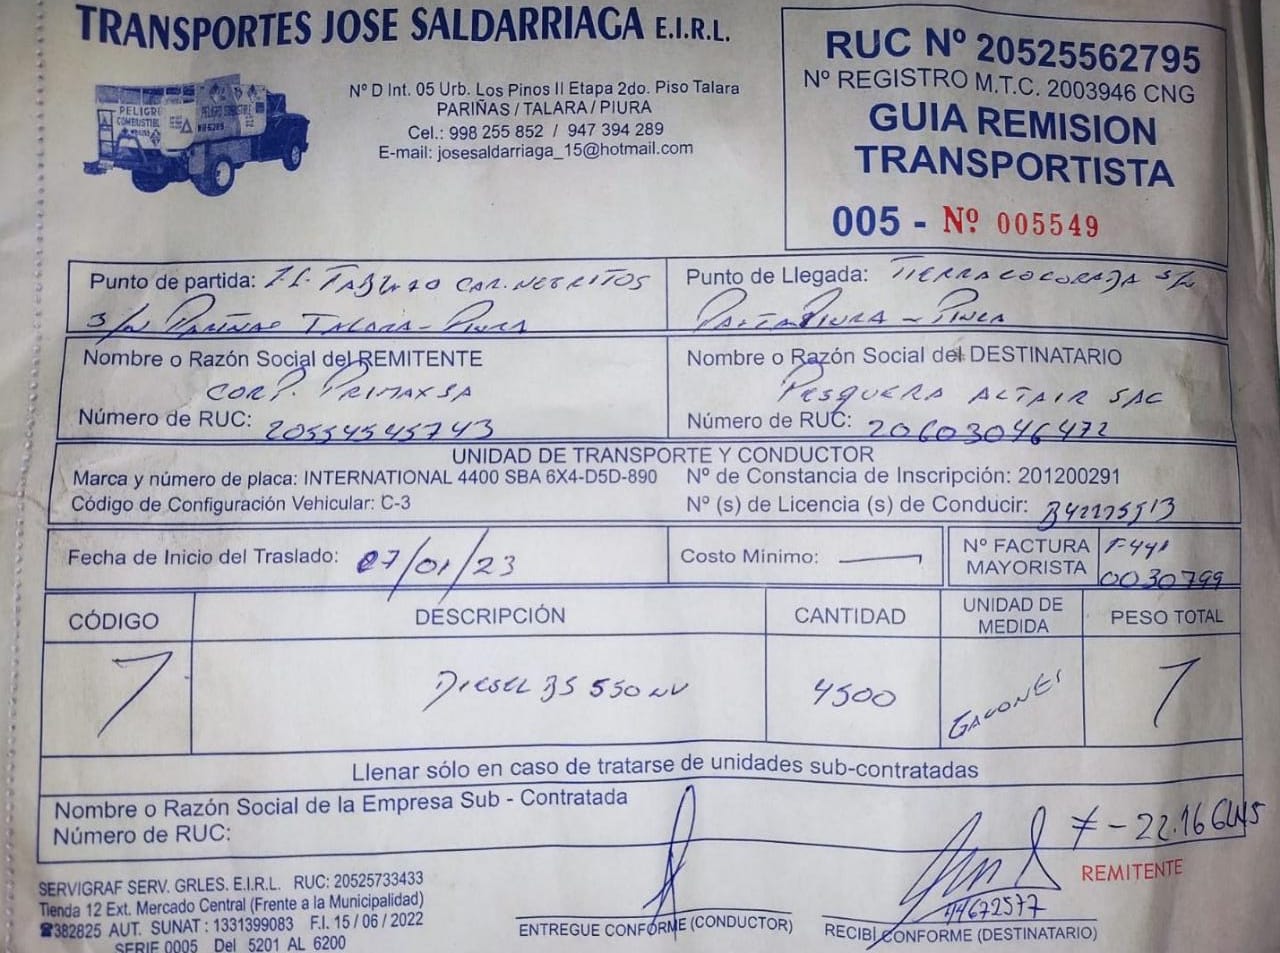 TRANSPORTES JOSE SALDARRIAGA E.I.R.L.
Nº D Int. 05 Urb. Los Pinos II Etapa 2do. Piso Talara
PARIÑAS / TALARA / PIURA
Cel.: 998 255 852 / 947 394 289
E-mail: josesaldarriaga_15@hotmail.com
PELIGRO
COMBUSTIBLE
RUC Nº 20525562795
Nº REGISTRO M.T.C. 2003946 CNG
GUIA REMISION
TRANSPORTISTA
005 - Nº 005549
Punto de partida: Z.I. TABLAZO CAR. NEGRITOS
S/N PARIÑAS TALARA - PIURA
Punto de Llegada: TIERRA COLORADA S/N
PAITA PIURA - PIURA
Nombre o Razón Social del REMITENTE
CORP. PRIMAX SA
Número de RUC: 20554545743
Nombre o Razón Social del DESTINATARIO
PESQUERA ALTAIR SAC
Número de RUC: 20603046472
UNIDAD DE TRANSPORTE Y CONDUCTOR
Marca y número de placa: INTERNATIONAL 4400 SBA 6X4-D5D-890
Nº de Constancia de Inscripción: 201200291
Código de Configuración Vehicular: C-3
Nº (s) de Licencia (s) de Conducir:
Fecha de Inicio del Traslado: 07/01/23
Costo Mínimo:
Nº FACTURA MAYORISTA F441
0030799
CÓDIGO DESCRIPCIÓN CANTIDAD UNIDAD DE MEDIDA PESO TOTAL
DIESEL B5 S50 UV 4500 GALONES
Llenar sólo en caso de tratarse de unidades sub-contratadas
Nombre o Razón Social de la Empresa Sub - Contratada
Número de RUC:
≠ - 22.16 GLNS
REMITENTE
SERVIGRAF SERV. GRLES. E.I.R.L. RUC: 20525733433
Tienda 12 Ext. Mercado Central (Frente a la Municipalidad)
☎382825 AUT. SUNAT : 1331399083 F.I. 15 / 06 / 2022
SERIE 0005 Del 5201 AL 6200
ENTREGUE CONFORME (CONDUCTOR)
RECIBI CONFORME (DESTINATARIO)